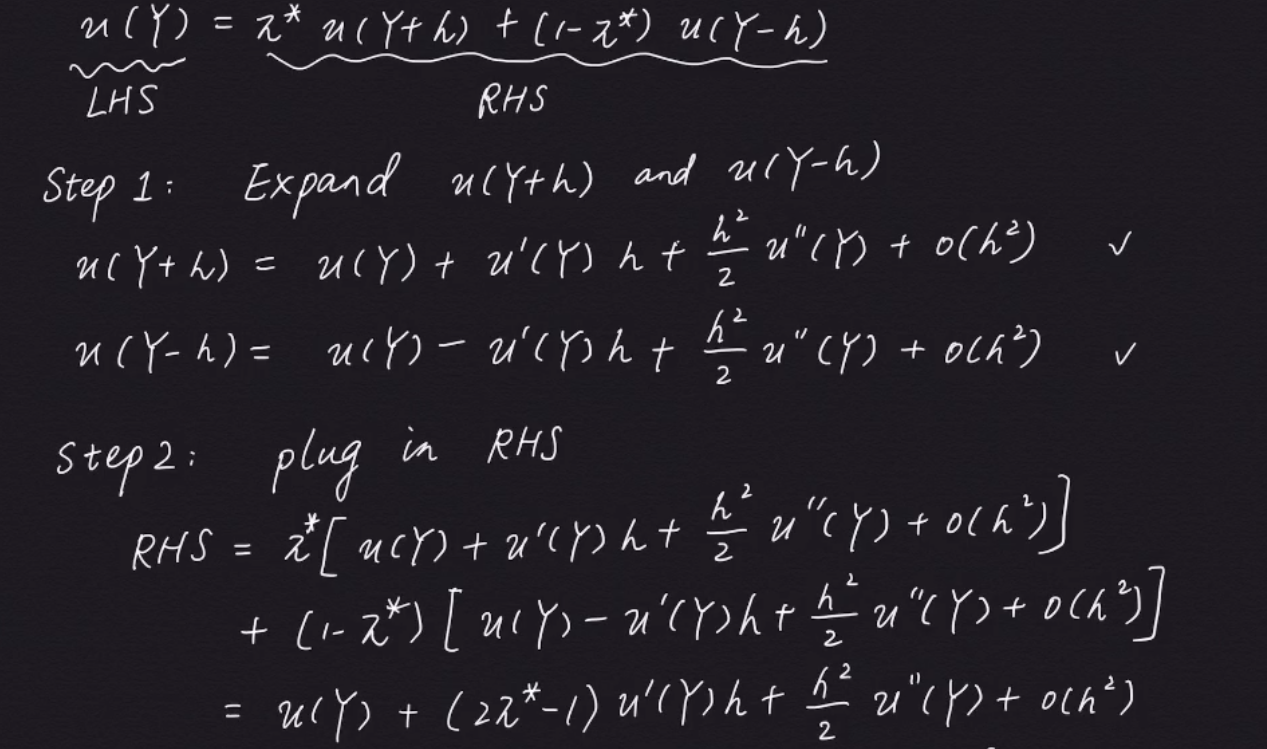 u(Y) = π* u(Y+h) + (1-π*) u(Y-h)
LHS RHS
Step 1: Expand u(Y+h) and u(Y-h)
u(Y+h) = u(Y) + u'(Y) h + h²/2 u"(Y) + o(h²) ✓
u(Y-h) = u(Y) - u'(Y) h + h²/2 u"(Y) + o(h²) ✓
Step 2: plug in RHS
RHS = π*[u(Y) + u'(Y) h + h²/2 u"(Y) + o(h²)]
+ (1-π*) [u(Y) - u'(Y) h + h²/2 u"(Y) + o(h²)]
= u(Y) + (2π*-1) u'(Y) h + h²/2 u"(Y) + o(h²)